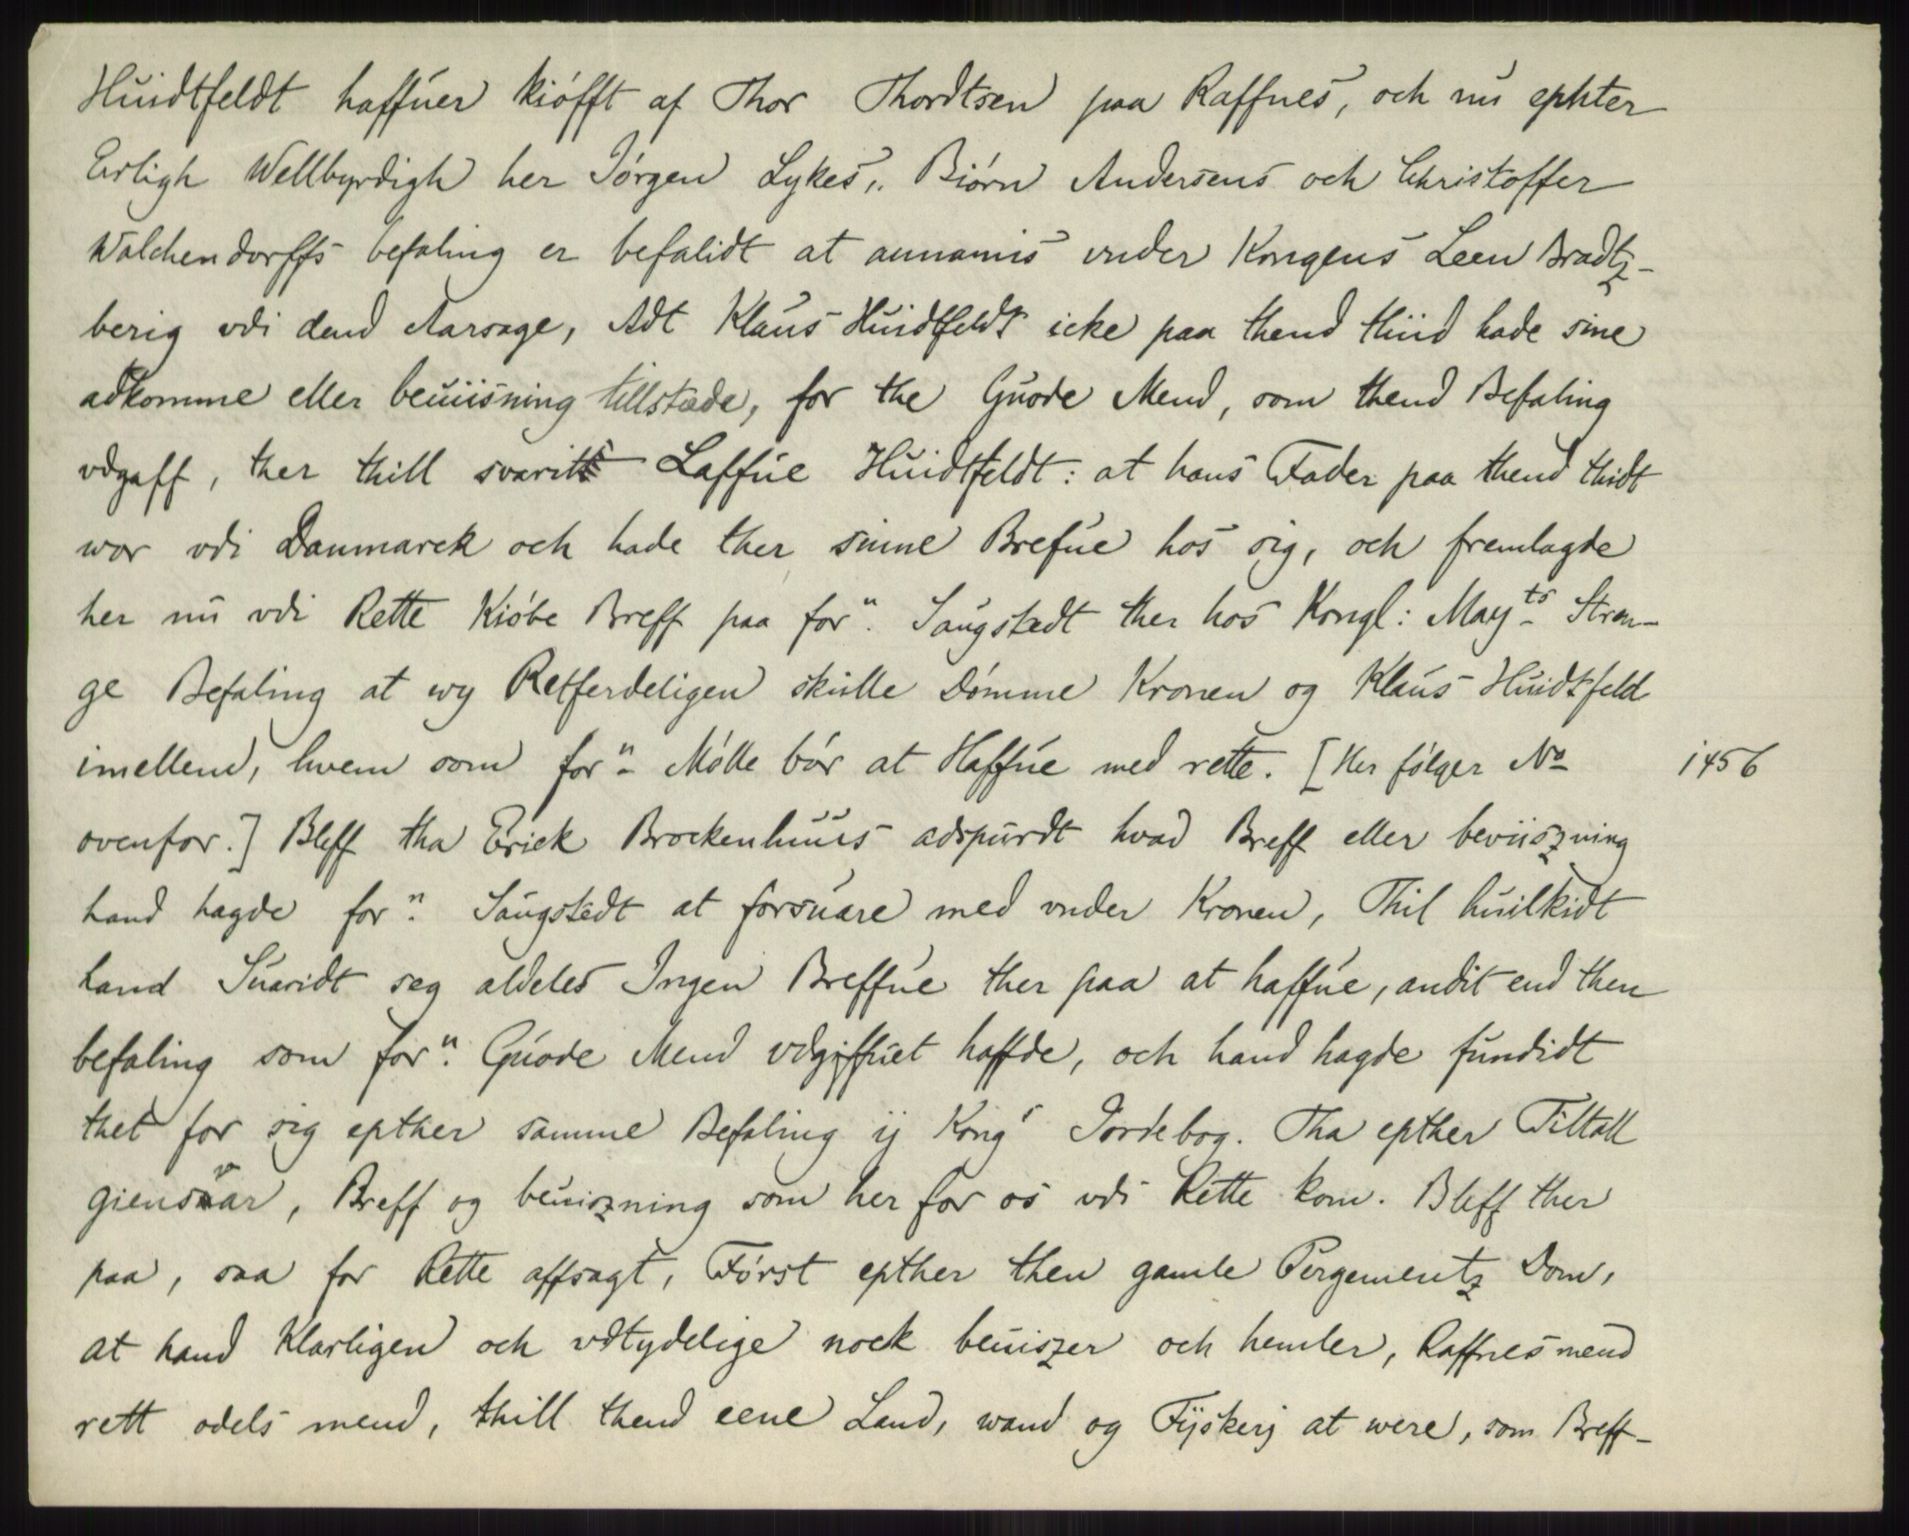 Huidtfeldt haffuer kiöfft af Thor Thordtsen paa Raffnes, och nu ephter
Erligh Wellbyrdigh her Jörgen Lykes, Biörn Andersens och Christoffer
Walchendorffs befaling er befalidt at annamis vnder Kongens Leen Bradtz-
berig vdi dend Aarsage, Adt Klaus Huidtfeldt icke paa thend thiid hade sine
adkomme eller beuiisning tillstæde, for the Guode Mend, som thend Befaling
vdgaff, ther thill svaritt Laffue Huidtfeldt: at hans Fader paa thend thidt
wor vdi Danmarck och hade ther sinne Brefue hos sig, och fremlagde
her nu vdi Rette Kiöbe Breff paa forn. Saugstedt ther hos Kongl: Mayts Stren-
ge Befaling at wy Retferdeligen skulle Dömme Kronen og Klaus Huidtfeld
imellem, hvem som forn. Mölle bör at Haffue med rette. [Her fölger No 1456
ovenfor.] Bleff tha Erick Brockenhuus adspurdt hvad Breff eller beviiszning
hand hagde forn. Saugstedt at forsuare med vnder Kronen, Thil huilkidt
hand Suaridt seg aldeles Ingen Breffue ther paa at haffue, andit end then
befaling som forn. Guode Mend vdgiffuet haffde, och hand hagde fundidt
thet for sig epther samme Befaling ij Kongs Jordebog. Tha epther Tiltall
giensvar, Breff og beuiszning som her for os vdi Rette kom. Bleff ther
paa, saa for Rette affsagt, Först epther then gamle Pergementz Dom,
at hand Klarligen och vdtydelige nock beuiszer och hemler, Raffnesmend
rett odels mend, thill thend eene Land, wand og Fijskerj at were, som Breff-